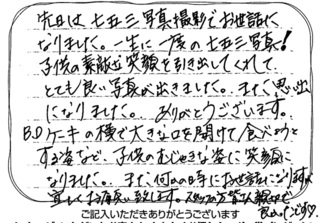 先日は七五三写真撮影でお世話に
なりました。一生に一度の七五三写真!
子供の素敵な笑顔を引き出してくれて、
とても良い写真が出来ました。また、思い出
になりました。ありがとうございます。
B.Dケーキの種で大きな口を開けて食べようと
する姿など、子供のむじゃきな姿に笑顔に
なりました。また、何かの時にお世話になりますが
宜しくお願い致します。スタッフの方皆んな親切で
良かったです♡
ご記入いただきありがとうございます